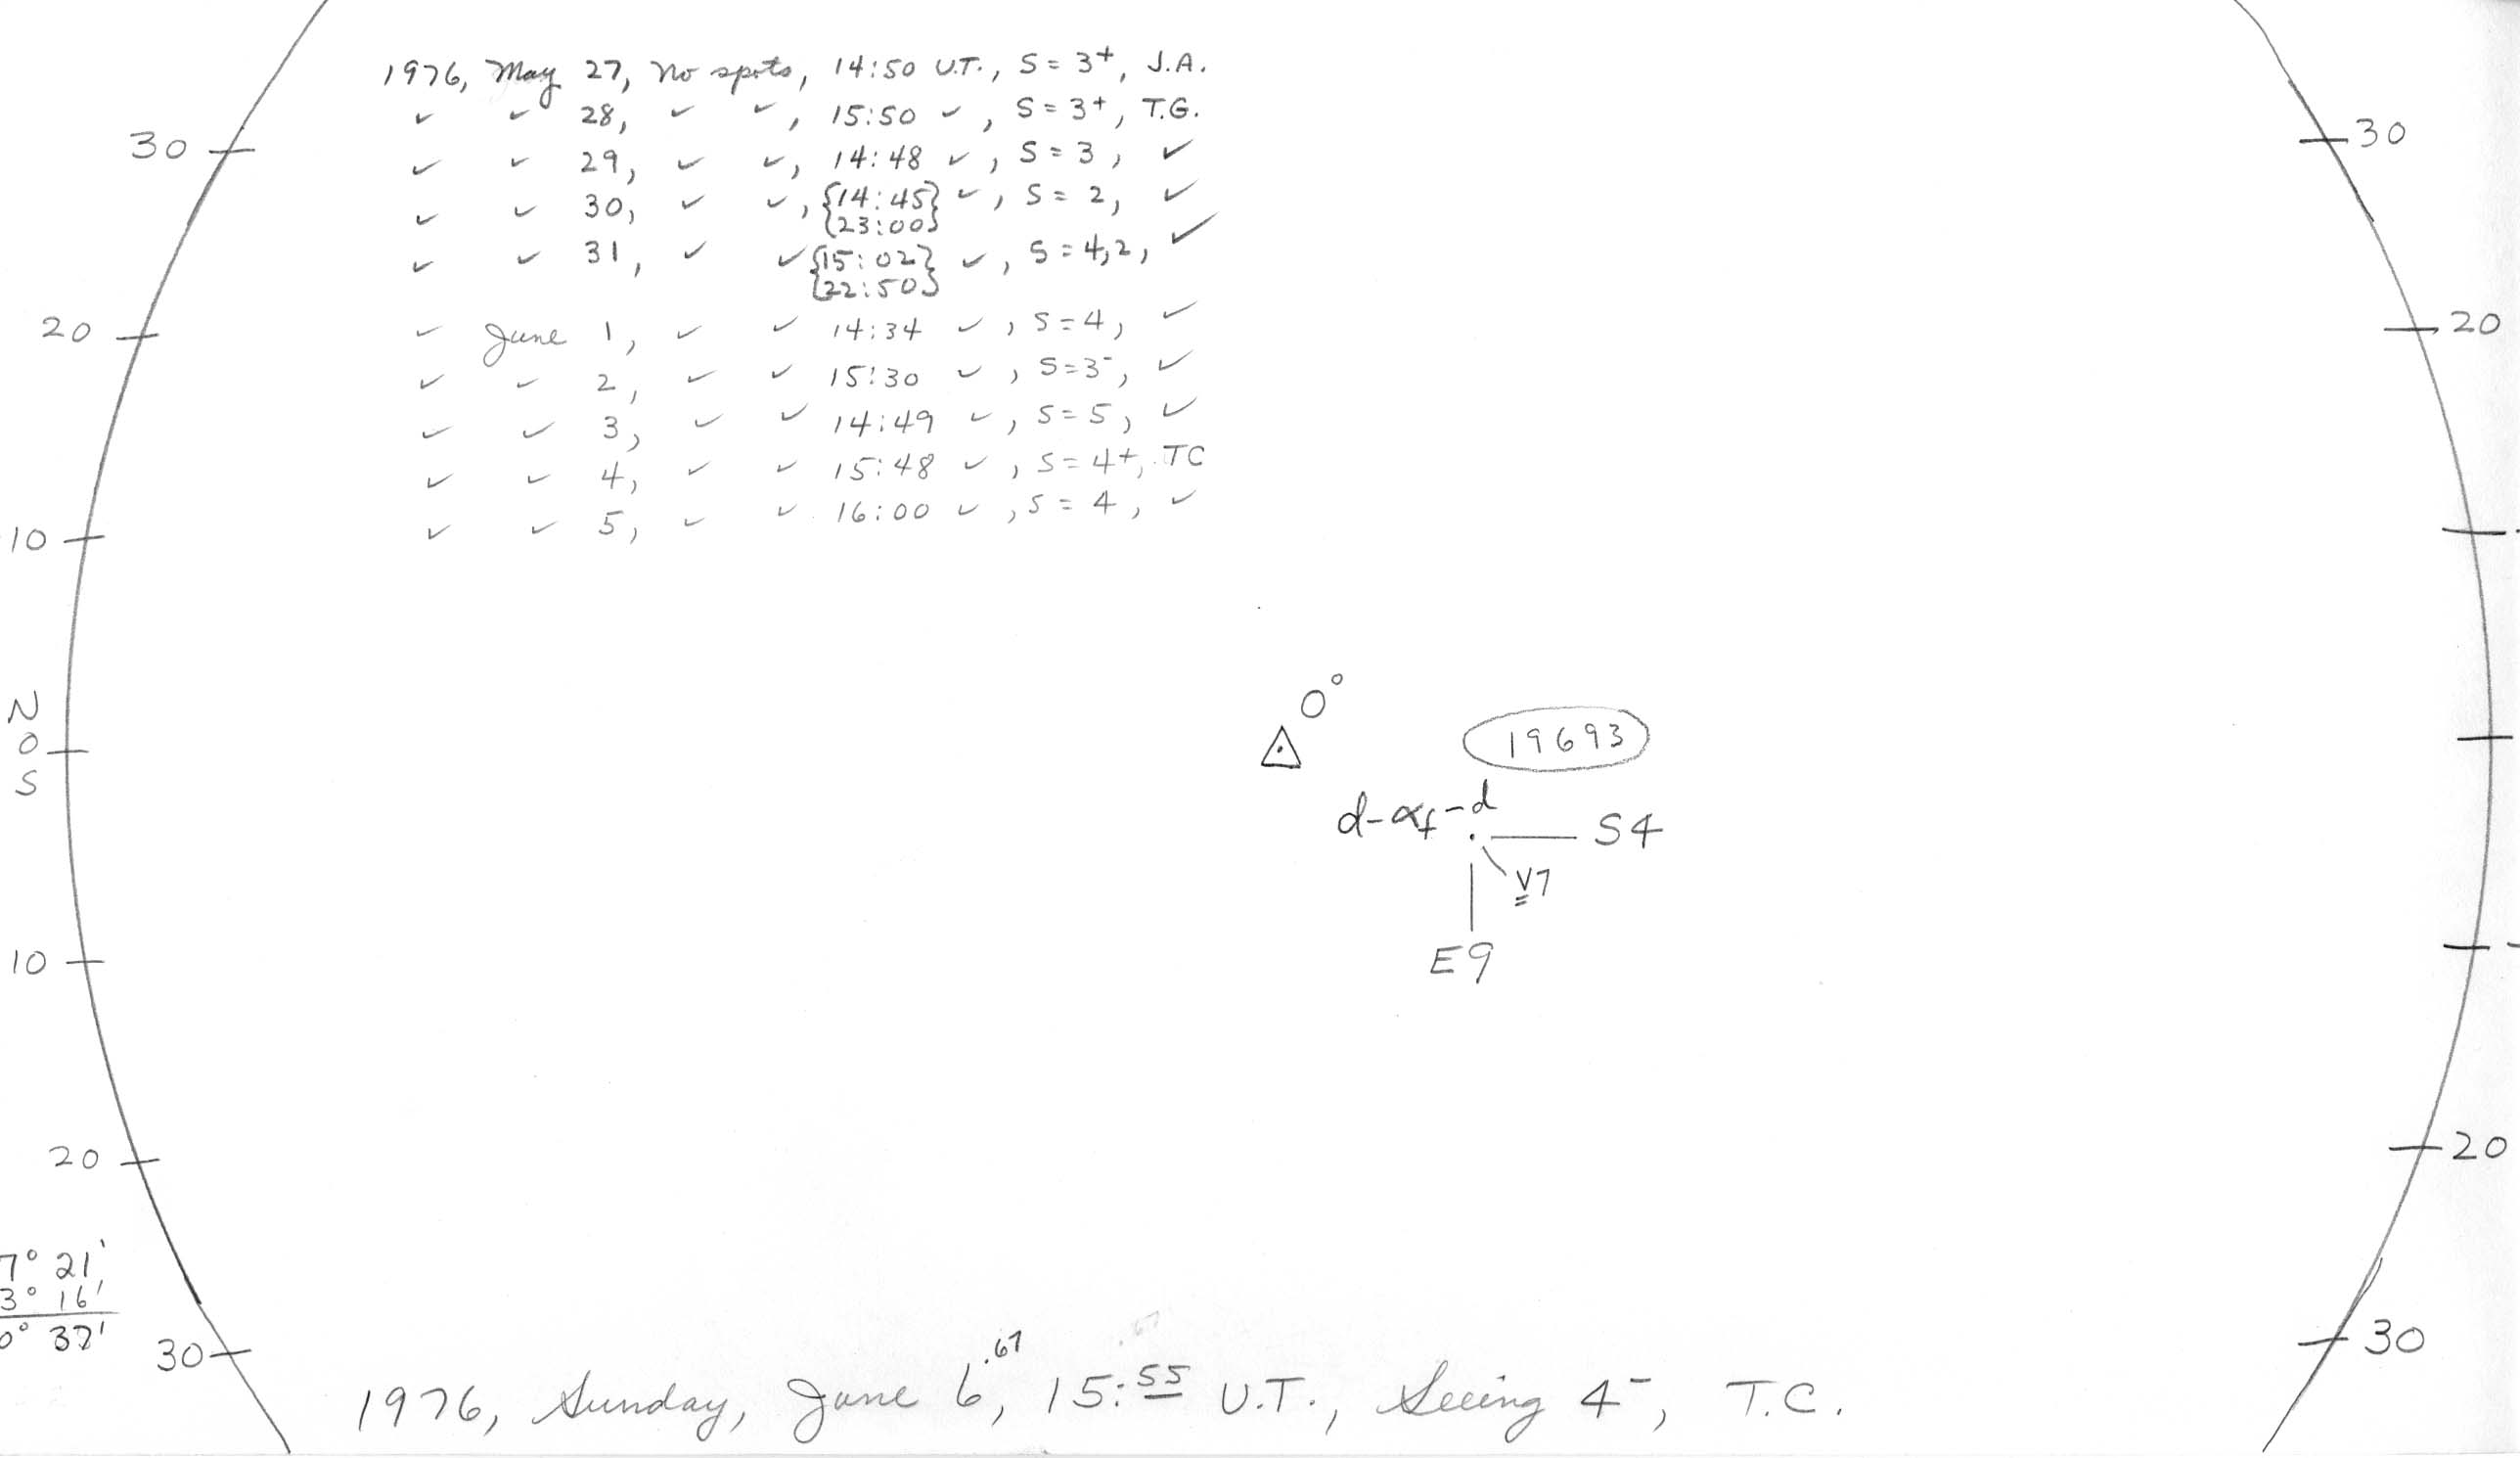 1976, May 27, No spots, 14:50 U.T., S = 3+, J.A.
✓ ✓ 28, ✓ ✓, 15:50 ✓, S = 3+, T.G.
✓ ✓ 29, ✓ ✓, 14:48 ✓, S = 3, ✓
✓ ✓ 30, ✓ ✓, {14:45} ✓, S = 2, ✓
{23:00}
✓ ✓ 31, ✓ ✓ {15:02} ✓, S = 4,2, ✓
{22:50}
✓ June 1, ✓ ✓ 14:34 ✓, S = 4, ✓
✓ ✓ 2, ✓ ✓ 15:30 ✓, S = 3-, ✓
✓ ✓ 3, ✓ ✓ 14:49 ✓, S = 5, ✓
✓ ✓ 4, ✓ ✓ 15:48 ✓, S = 4+, TC
✓ ✓ 5, ✓ ✓ 16:00 ✓, S = 4, ✓
30 30
20 20
10
N
0
S
0°
19693
d-αf-d
S4
V7
E9
10
20 20
7° 21'
3° 16'
0° 37'
30 30
.67
1976, Sunday, June 6.67, 15:55 U.T., Seeing 4-, T.C.